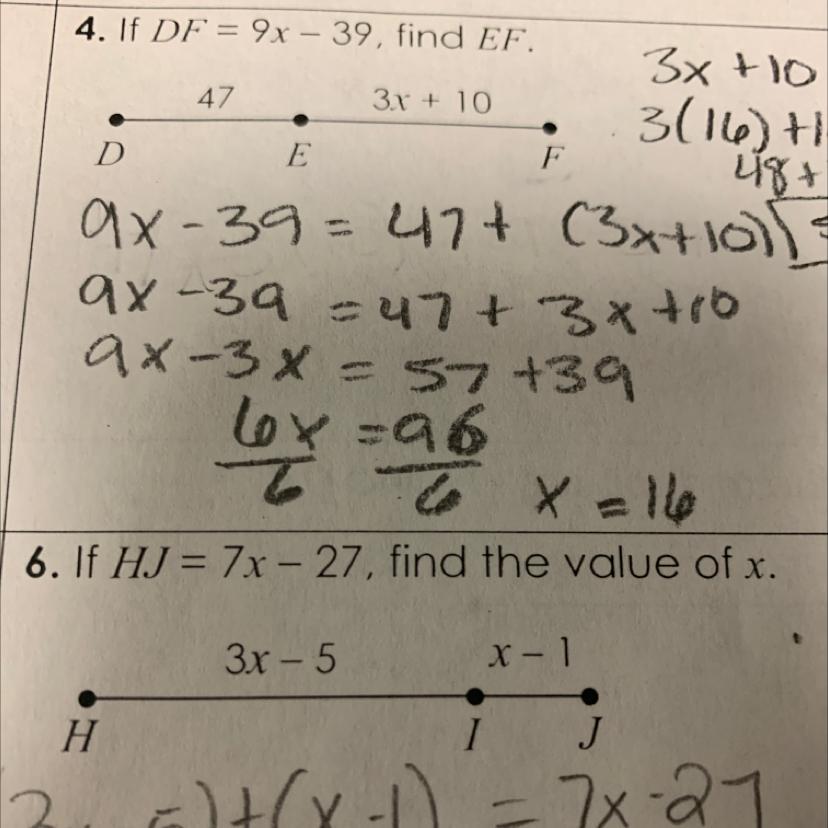 4. If DF = 9x − 39, find EF.
47
3x + 10
D
E
F
3x + 10
3(16) + 1
48 +
9x - 39 = 47 + (3x + 10)
9x - 39 = 47 + 3x + 10
9x - 3x = 57 + 39
6x = 96
6 6
x = 16
6. If HJ = 7x − 27, find the value of x.
3x − 5
x − 1
H
I
J
) + (x - 1) = 7x - 27